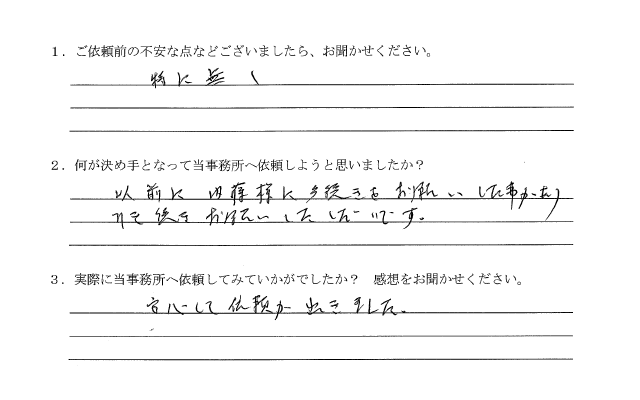 1．ご依頼前の不安な点などございましたら、お聞かせください。
特に無し
2．何が決め手となって当事務所へ依頼しようと思いましたか？
以前に 内藤様に手続きをお願いした事があり
お願いしたしだいです。
3．実際に当事務所へ依頼してみていかがでしたか？　感想をお聞かせください。
安心して依頼が出きました。